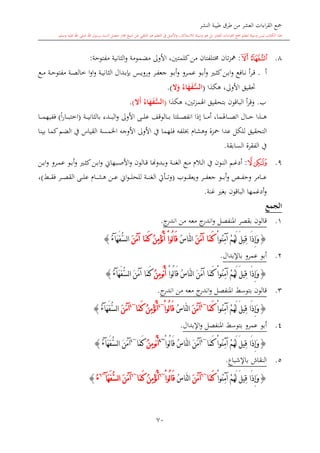 جمع القراءات العشر من طرق طيبة النشر
٨. ﴿السُّفَهَآءُ أَلَآ﴾: همزتان مختلفتان من كلمتين، الأولى مضمومة والثانية مفتوحة:
أ . قرأ نافع وابن كثير وأبو عمرو وأبو جعفر ورويس بإبدال الثانية واوا خالصة مفتوحة مع
تحقيق الأولى، هكذا (السُّفَهَآءُ وَلَا).
ب. وقرأ الباقون بتحقيق الهمزتين، هكذا (السُّفَهَآءُ أَلَآ).
هذا حال اتصالهما، أما إذا انفصلتا بالوقف على الأولى والبدء بالثانية (اختباراً) ففيهما
التحقيق للكل عدا حمزة وهشام بخلفه فلهما في الأولى الأوجه الخمسة القياس في الضم كما بينا
في الفقرة السابقة.
٩. ﴿وَلَٰكِن لَّا﴾: أدغم النون في اللام مع الغنة وبدونها قالون والأصبهاني وابن كثير وأبو عمرو وابن
عامر وحفص وأبو جعفر ويعقوب (وتأتي الغنة للحلواني عن هشام على القصر فقط)،
وأدغمها الباقون بغير غنة.
الجمع
١. قالون بقصر المنفصل واندرج معه من اندرج.
﴿ وَإِذَا قِيلَ لَهُمْ ءَامِنُوا كَمَآ ءَامَنَ النَّاسُ قَالُوٓا أَنُؤْمِنُ كَمَآ ءَامَنَ السُّفَهَآءُ ﴾
٢. أبو عمرو بالإبدال.
﴿ وَإِذَا قِيلَ لَهُمْ ءَامِنُوا كَمَآ ءَامَنَ النَّاسُ قَالُوٓا أَنُومِنُ كَمَآ ءَامَنَ السُّفَهَآءُ ﴾
٣. قالون بتوسط المنفصل واندرج معه من اندرج.
﴿ وَإِذَا قِيلَ لَهُمْ ءَامِنُوا كَمَآ ءَامَنَ النَّاسُ قَالُوٓا أَنُؤْمِنُ كَمَآ ءَامَنَ السُّفَهَآءُ ﴾
٤. أبو عمرو بتوسط المنفصل والإبدال.
﴿ وَإِذَا قِيلَ لَهُمْ ءَامِنُوا كَمَآ ءَامَنَ النَّاسُ قَالُوٓا أَنُومِنُ كَمَآ ءَامَنَ السُّفَهَآءُ ﴾
٥. النقاش بالإشباع.
﴿ وَإِذَا قِيلَ لَهُمْ ءَامِنُوا كَمَآ ءَامَنَ النَّاسُ قَالُوٓا أَنُؤْمِنُ كَمَآ ءَامَنَ السُّفَهَآءُ ﴾
٧٠